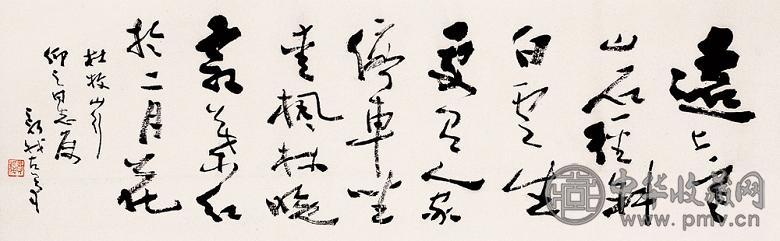 遠上寒
山石徑斜
白雲生
處有人家
停車坐
愛楓林晚
霜葉紅
於二月花
杜牧山行
仰之同志属
中华收藏网
www.pmv.cn